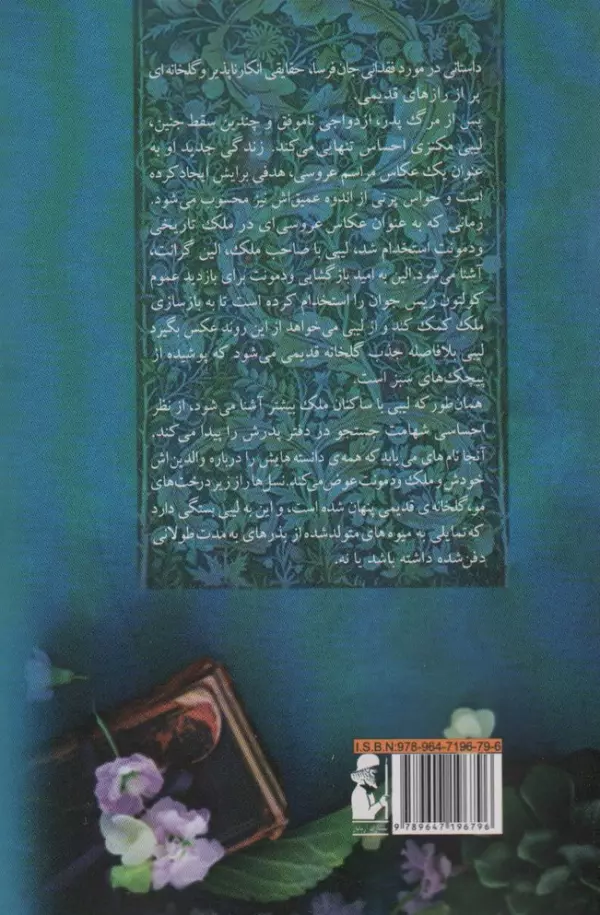 داستانی در مورد فقدانی جان‌فرسا، حقایقی انکارناپذیر و گلخانه‌ای
پر از رازهای قدیمی.
پس از مرگ پدر، ازدواجی ناموفق و چندین سقط جنین،
لیبی مکنزی احساس تنهایی می‌کند. زندگی جدید او به
عنوان یک عکاس مراسم عروسی، هدفی برایش ایجاد کرده
است و حواس پرتی از اندوه عمیق‌اش نیز محسوب می‌شود.
زمانی که به عنوان عکاس عروسی‌ای در ملک تاریخی
ودمونت استخدام شد، لیبی با صاحب ملک، الین گرانت،
آشنا می‌شود. الین به امید بازگشایی ودمونت برای بازدید عموم
کولتون ریس جوان را استخدام کرده است. تا به بازسازی
ملک کمک کند و از لیبی می‌خواهد از این روند عکس بگیرد
لیبی بلافاصله جذب گلخانه قدیمی می‌شود که پوشیده از
پیچک‌های سبز است.
همان‌طور که لیبی با ساکنان ملک بیشتر آشنا می‌شود، از نظر
احساسی شهامت جستجو در دفتر پدرش را پیدا می‌کند،
آنجا نام‌های می‌یابد که همه‌ی دانسته‌هایش را درباره والدین‌اش
خودش و ملک ودمونت عوض می‌کند. نسل‌ها راز زیر درخت‌های
مو، گلخانه‌ی قدیمی پنهان شده است، و این به لیبی بستگی دارد
که تمایلی به میوه های متولدشده از بذرهای به مدت طولانی
دفن‌شده داشته باشد یا نه.
I.S.B.N:978-964-7196-79-6
9 789647 196796